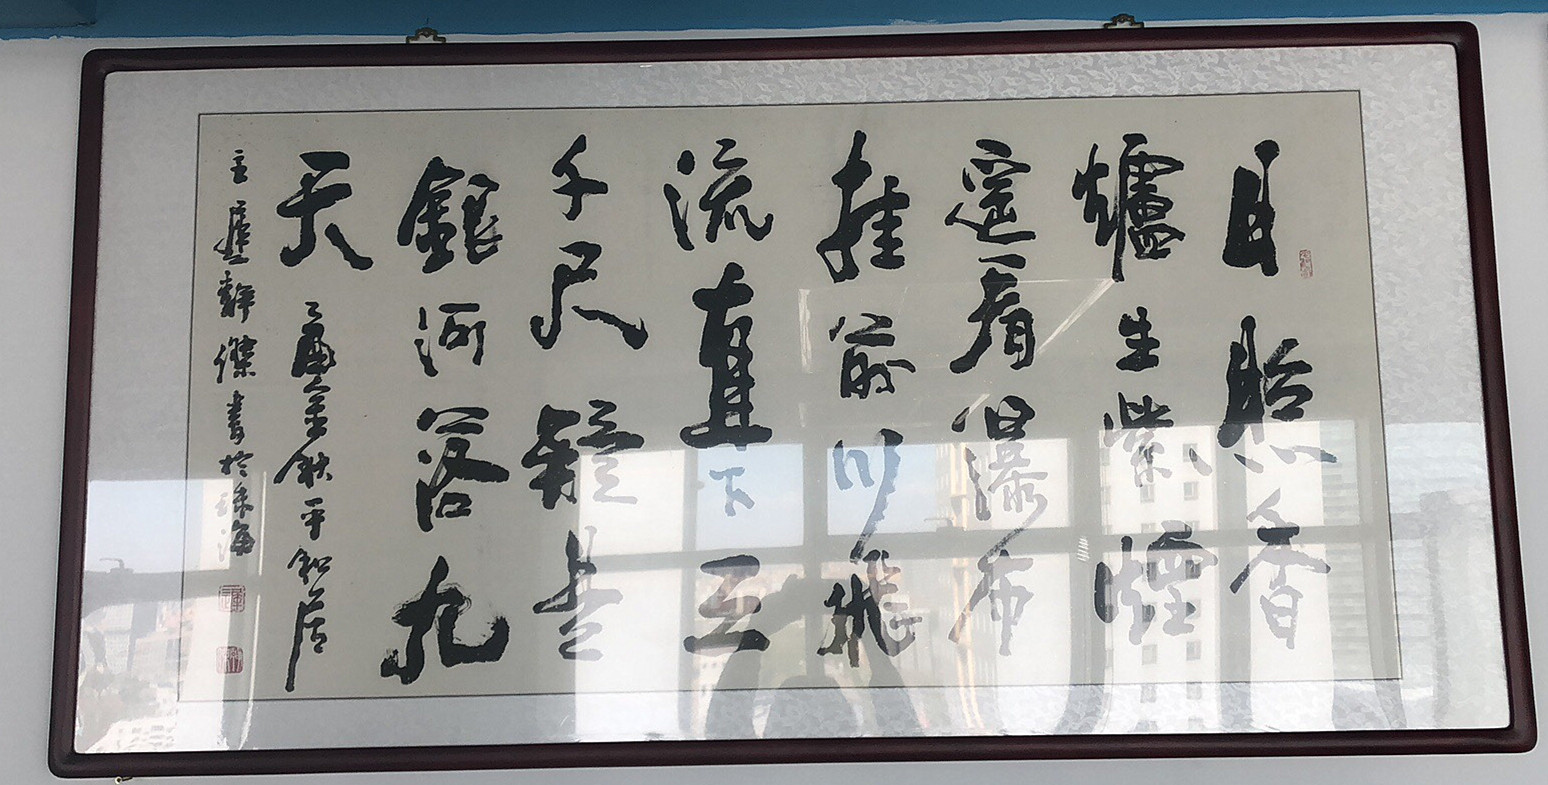 日照香
爐生紫煙
遙看瀑布
挂前川飛
流直下三
千尺疑是
銀河落九
天
乙酉金秋平和居
主靜傑書於珠海